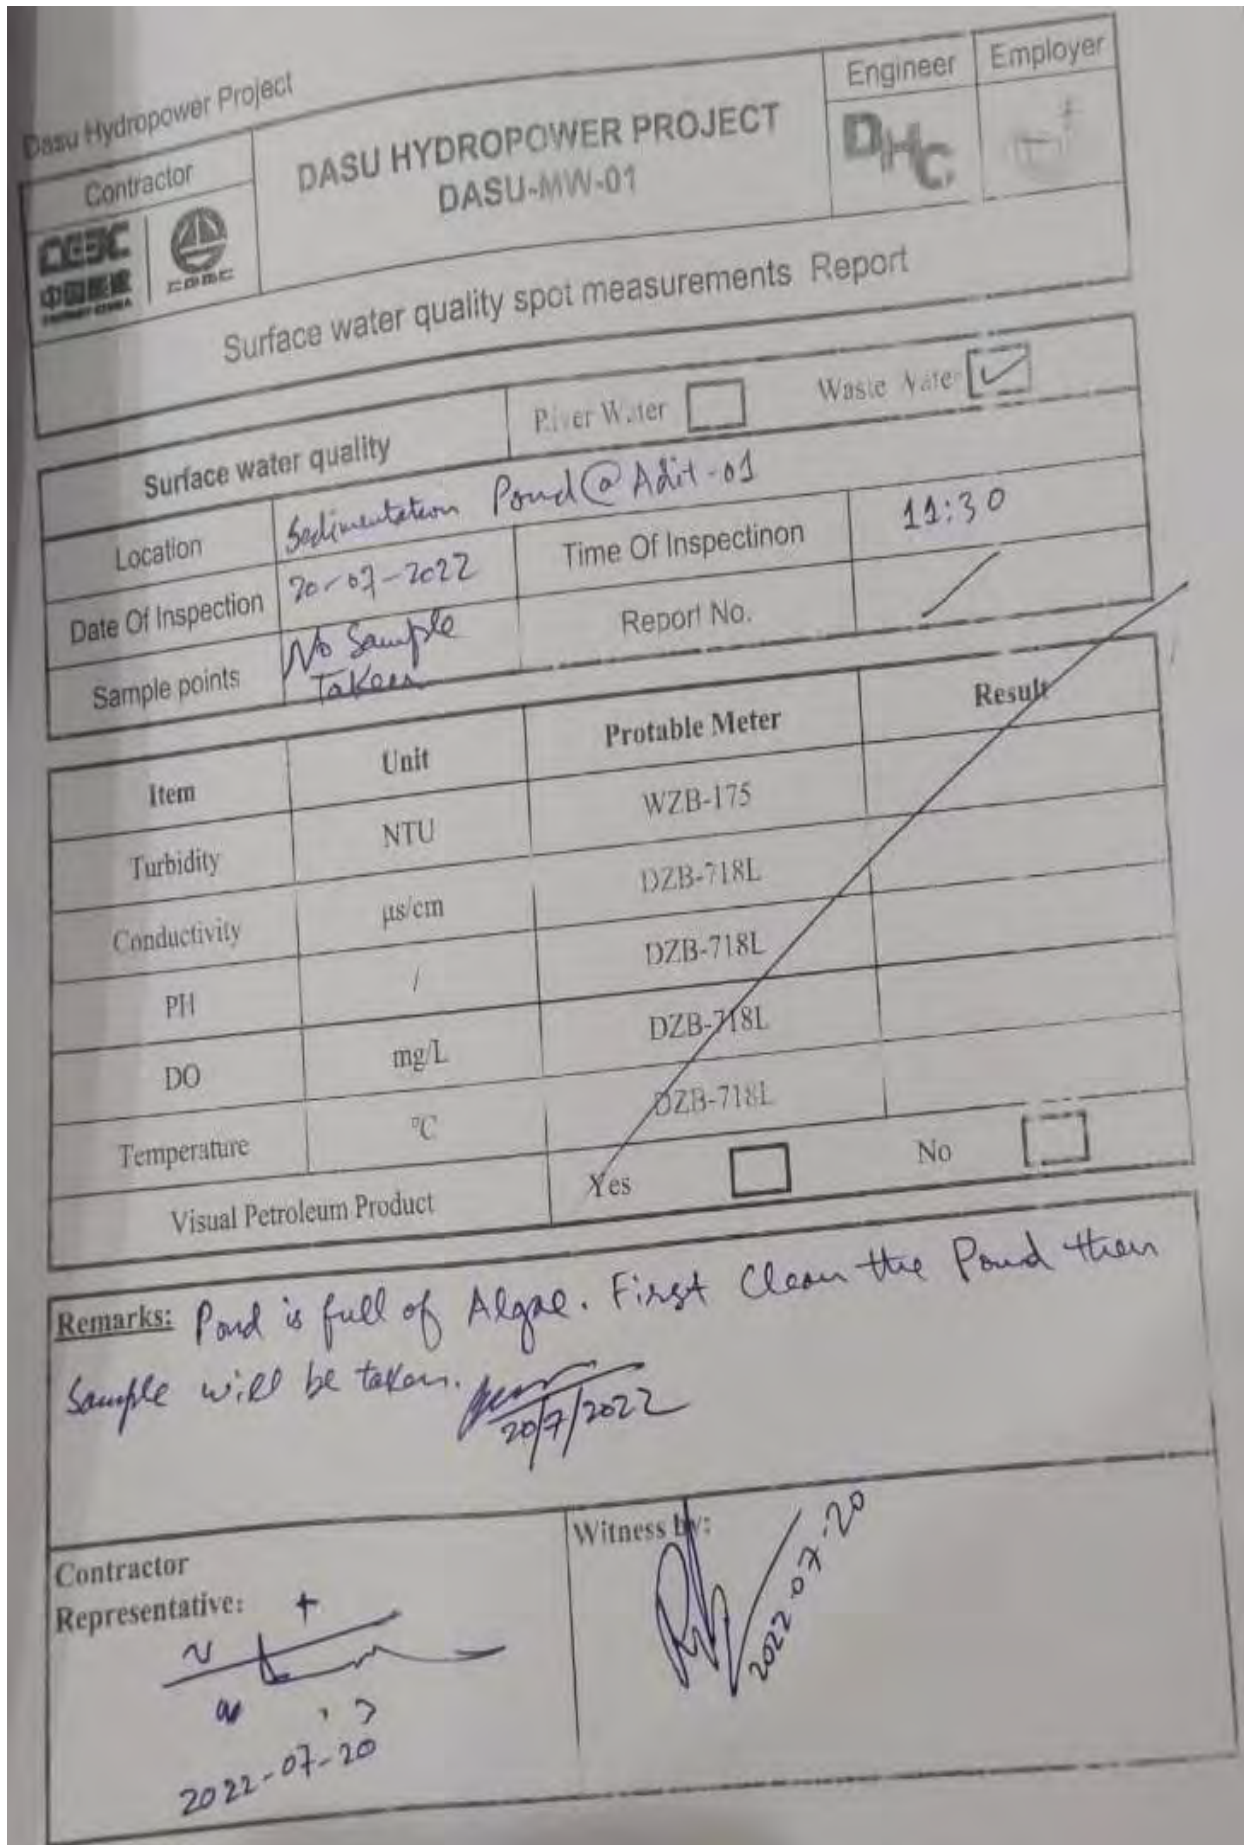 Dasu Hydropower Project
Contractor
DASU HYDROPOWER PROJECT
DASU-MW-01
Engineer
Employer
DHC
中国能建
Surface water quality spot measurements Report
Surface water quality
River Water
Waste Water
Location
Sedimentation Pond @ Adit-01
Date Of Inspection
20-07-2022
Time Of Inspectinon
11:30
Sample points
No Sample
Taken
Report No.
Item
Unit
Protable Meter
Result
Turbidity
NTU
WZB-175
Conductivity
µs/cm
DZB-718L
PH
/
DZB-718L
DO
mg/L
DZB-718L
Temperature
°C
DZB-718L
Visual Petroleum Product
Yes
No
Remarks: Pond is full of Algae. First Clean the Pond then
Sample will be taken.
20/7/2022
Contractor
Representative:
2022-07-20
Witness by:
2022-07-20